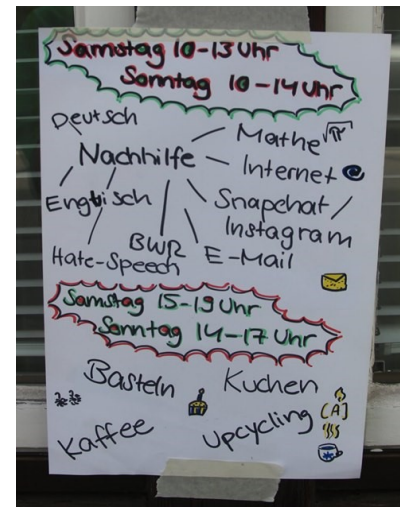 Samstag 10-13 Uhr
Sonntag 10-14 Uhr
Deutsch
Mathe √π
Nachhilfe
Internet
Englisch
Snapchat /
Instagram
BWR
E-Mail
Hate-Speech
Samstag 15-19 Uhr
Sonntag 14-17 Uhr
Basteln
Kuchen
Kaffee
Upcycling
[A]